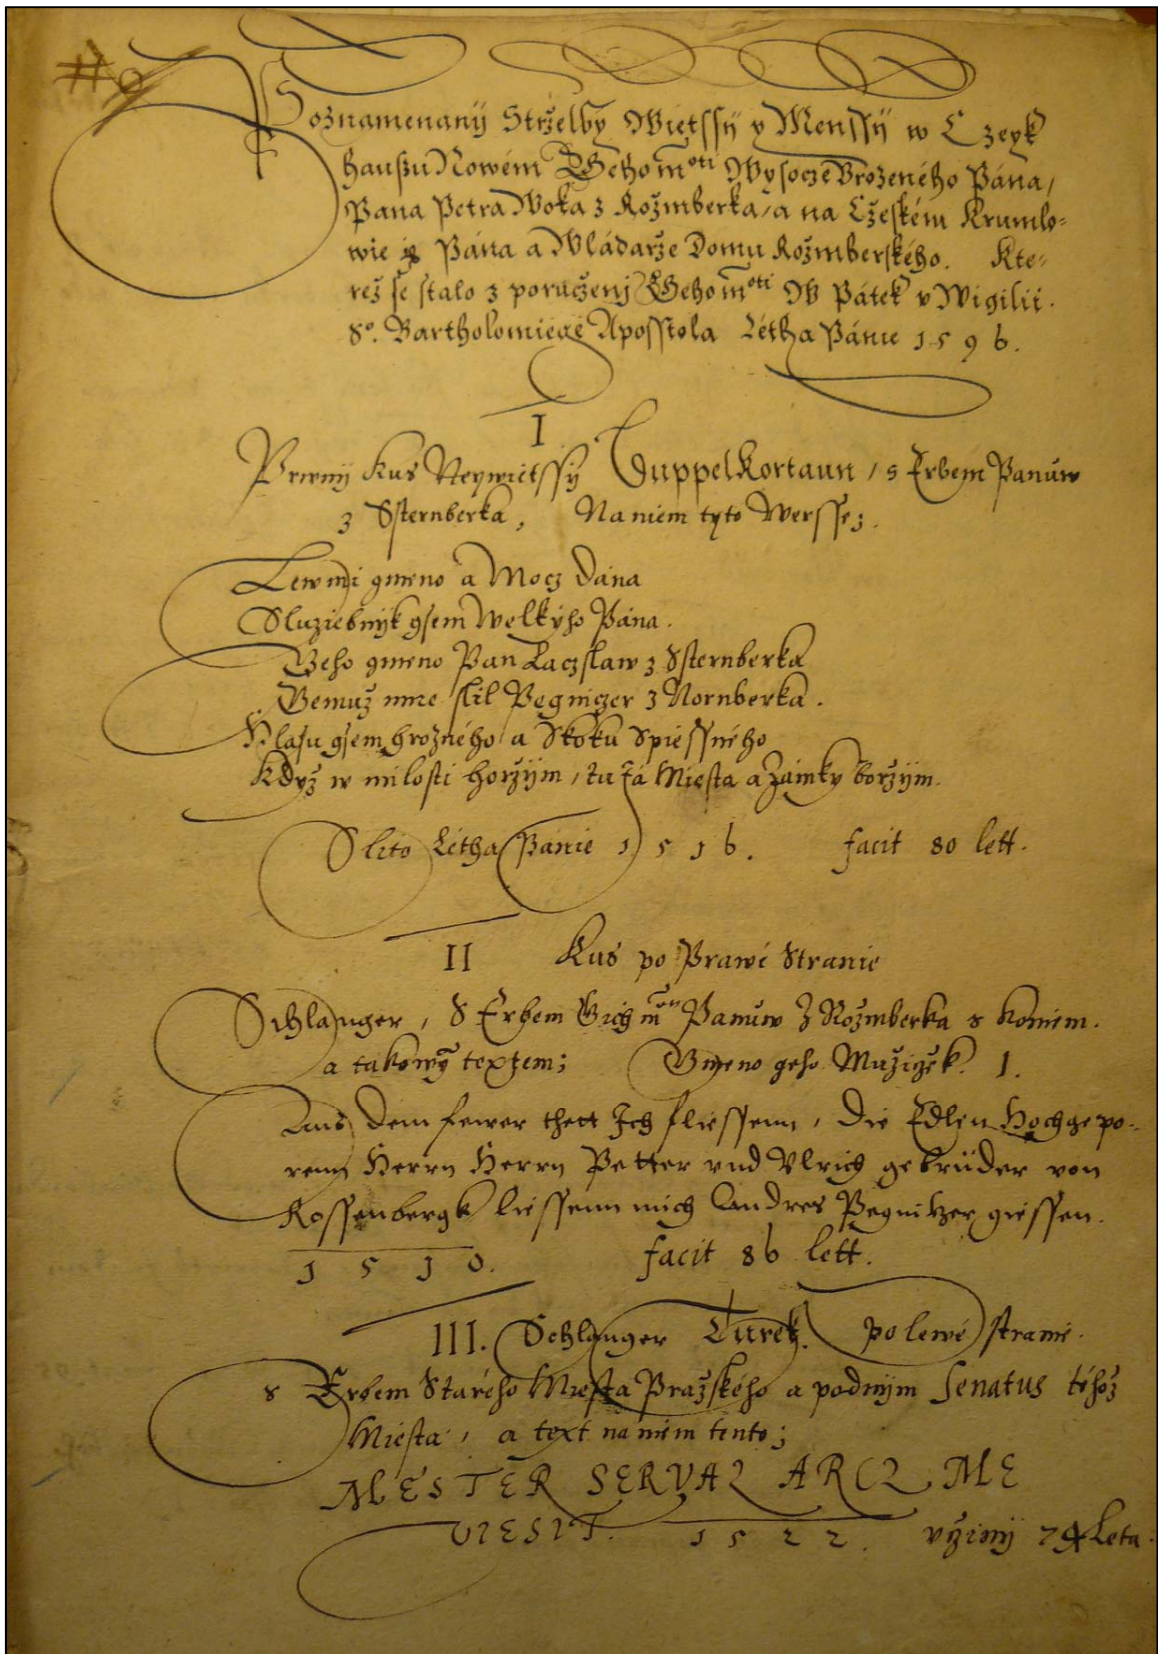 Poznamenanij Střelby Wietssij y Menssij w Czeyk
haußu Nowém Gehomoti Wysocze Vrozeného Pána,
Pana Petra Woka z Rožmberka, a na Cžeském Krumlo=
wie Pána a Wládarže Domu Rožmberského. Kte=
rež se stalo z porucženj Gehomoti W Pátek v Wigilii.
So. Bartholomiege Aposstola Létha Pánie 1596.
I
Prwnij Kus Neywietssij Duppel Kortaun, s Erbem Panuw
z Ssternberka, Na niem tyto Wersse;
Lew mi gmeno a Mocz dána
Služiebnijk gsem Welkýho Pána.
Geho gmeno Pan Laczslaw z Ssternberka
Gemuž mne slil Pegniczer z Nornberka.
Hlasu gsem hrozného a Skoku Spiessného
Když w milosti horžijm, tu tá Miesta a Zámky boržijm.
Slito Létha Pánie 1516. facit 80 lett.
II Kus po Prawé Stranie
Schlanger, S Erbem Gich Panuw Z Rožmberka s Koniem.
a takowý textem; Gmeno geho Mužiczek. 1.
Aus dem fewer thett Ich fliessenn, die Edlen Hochgepo=
renn Herrn Herrn Petter vnd Vlrich gebrüder von
Rossenbergk liessenn mich Andres Pegnitzer giessen.
1510. facit 86 lett.
III. Schlanger Turek. po lewé stranie.
s Erbem Starého Miesta Pražského a podnijm Senatus téhož
Miesta, a text na niem tento;
MESTER SERVAZ ARCZ ME
UZESIT. 1522. vžinij 74 Leta.